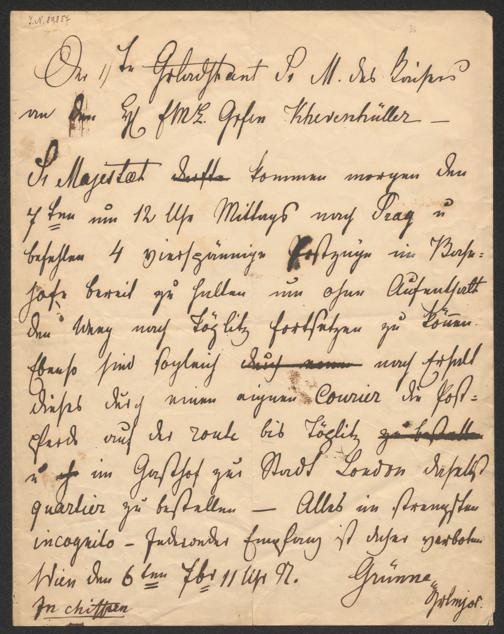 J.N. 84857
Der 1te Gladjtant Sr M. des Kaisers
an den H FML. Grfen Khevenhüller —
Sr Majestæt kommen morgen den
7ten um 12 Uhr Mittags nach Prag u
befehlen 4 vierspännige Postzüge im Bahn=
hofe bereit zu halten um ohne Aufenthalt
den Weg nach Töplitz fortsetzen zu können.
Ebenso sind sogleich durch einen nach Erhalt
dieses durch einen eignen Courier die Post=
pferde auf der route bis Töplitz zu bestellen
u im Gasthof zur Stadt London daselbst
quartier zu bestellen — Alles im strengsten
incognito — Jedweder Empfang ist daher verboten
Wien den 6ten 7br 11 Uhr
Grünne
In chiffren